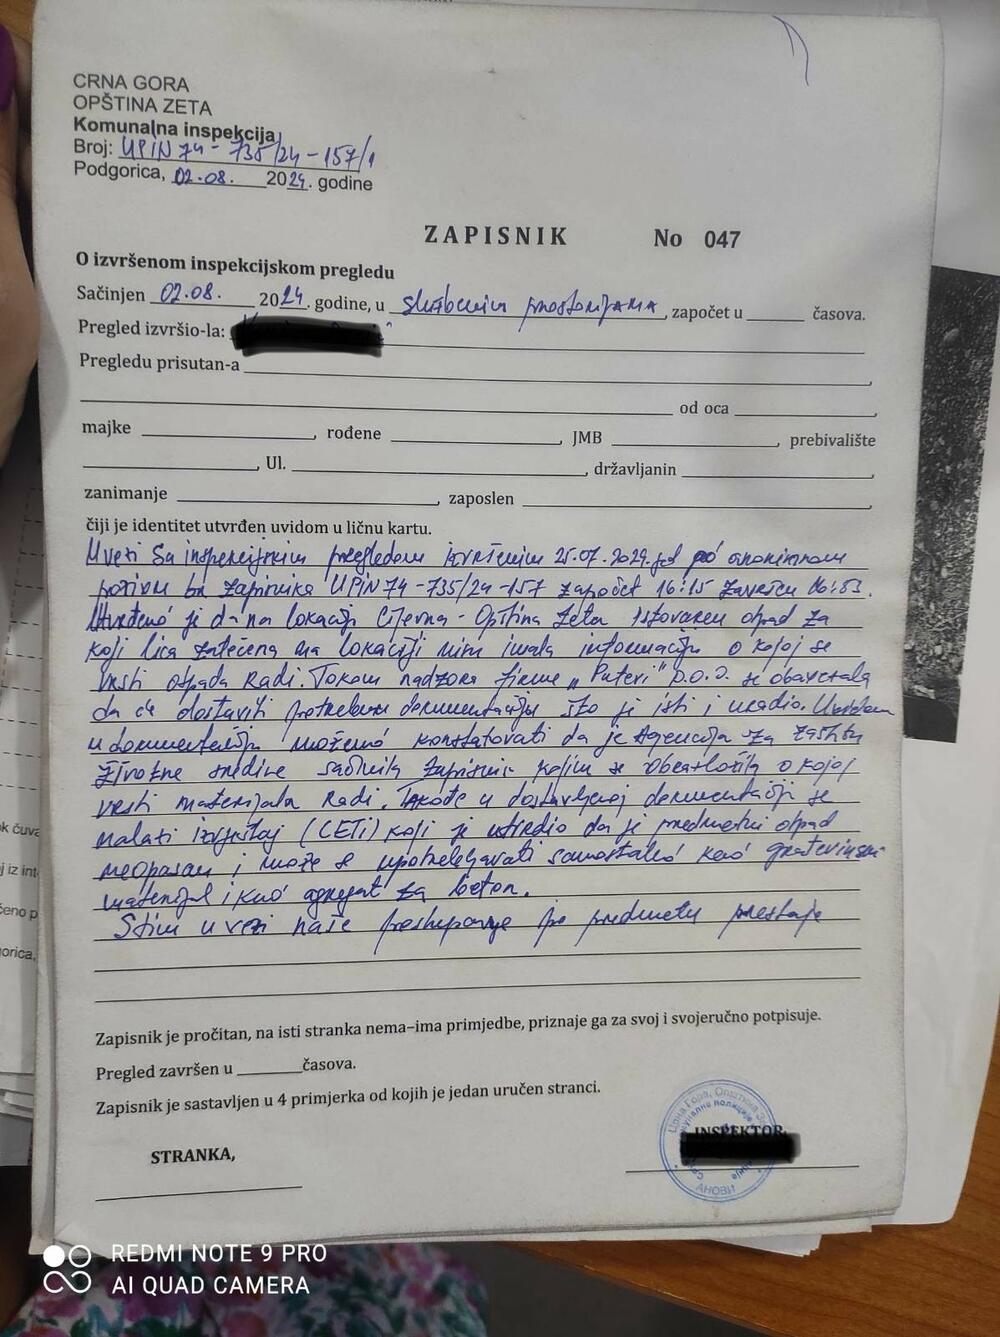 CRNA GORA
OPŠTINA ZETA
Komunalna inspekcija
Broj: UPIN 74-735/24-157/1
Podgorica, 02.08. 2024. godine
ZAPISNIK No 047
O izvršenom inspekcijskom pregledu
Sačinjen 02.08. 2024. godine, u službenim prostorijama, započet u ______ časova.
Pregled izvršio-la:
Pregledu prisutan-a
od oca
majke , rođene , JMB , prebivalište
, Ul. , državljanin
zanimanje , zaposlen
čiji je identitet utvrđen uvidom u ličnu kartu.
U vezi sa inspekcijskim pregledom izvršenim 25.07.2024.god po anonimnom
pozivu br zapisnika UPIN 74-735/24-157 započet 16:15 završen 16:53.
Utvrđeno je da na lokaciji Cijevna - Opština Zeta istovaren otpad za
koji lica zatečena na lokaciji nisu imala informaciju o kojoj se
vrsti otpada radi. Tokom nadzora firme „Putevi" D.O.O. se obavezala
da će dostaviti potrebnu dokumentaciju što je isti i uradio. Uvidom
u dokumentaciju možemo konstatovati da je Agencija za zaštitu
životne sredine sačinila zapisnik kojim se obrazložila o kojoj
vrsti materijala radi. Takođe u dostavljenoj dokumentaciji se
nalazi izvještaj (CETI) koji je utvrdio da je predmetni otpad
neopasan i može se upotrebljavati samostalno kao građevinski
materijal i kao agregat za beton.
S tim u vezi naše postupanje po predmetu prestaje
Zapisnik je pročitan, na isti stranka nema–ima primjedbe, priznaje ga za svoj i svojeručno potpisuje.
Pregled završen u ______časova.
Zapisnik je sastavljen u 4 primjerka od kojih je jedan uručen stranci.
STRANKA,
INSPEKTOR,
Црна Гора, Општина
АНОВИ
ok čuva
j iz int
čeno p
orica,
REDMI NOTE 9 PRO
AI QUAD CAMERA